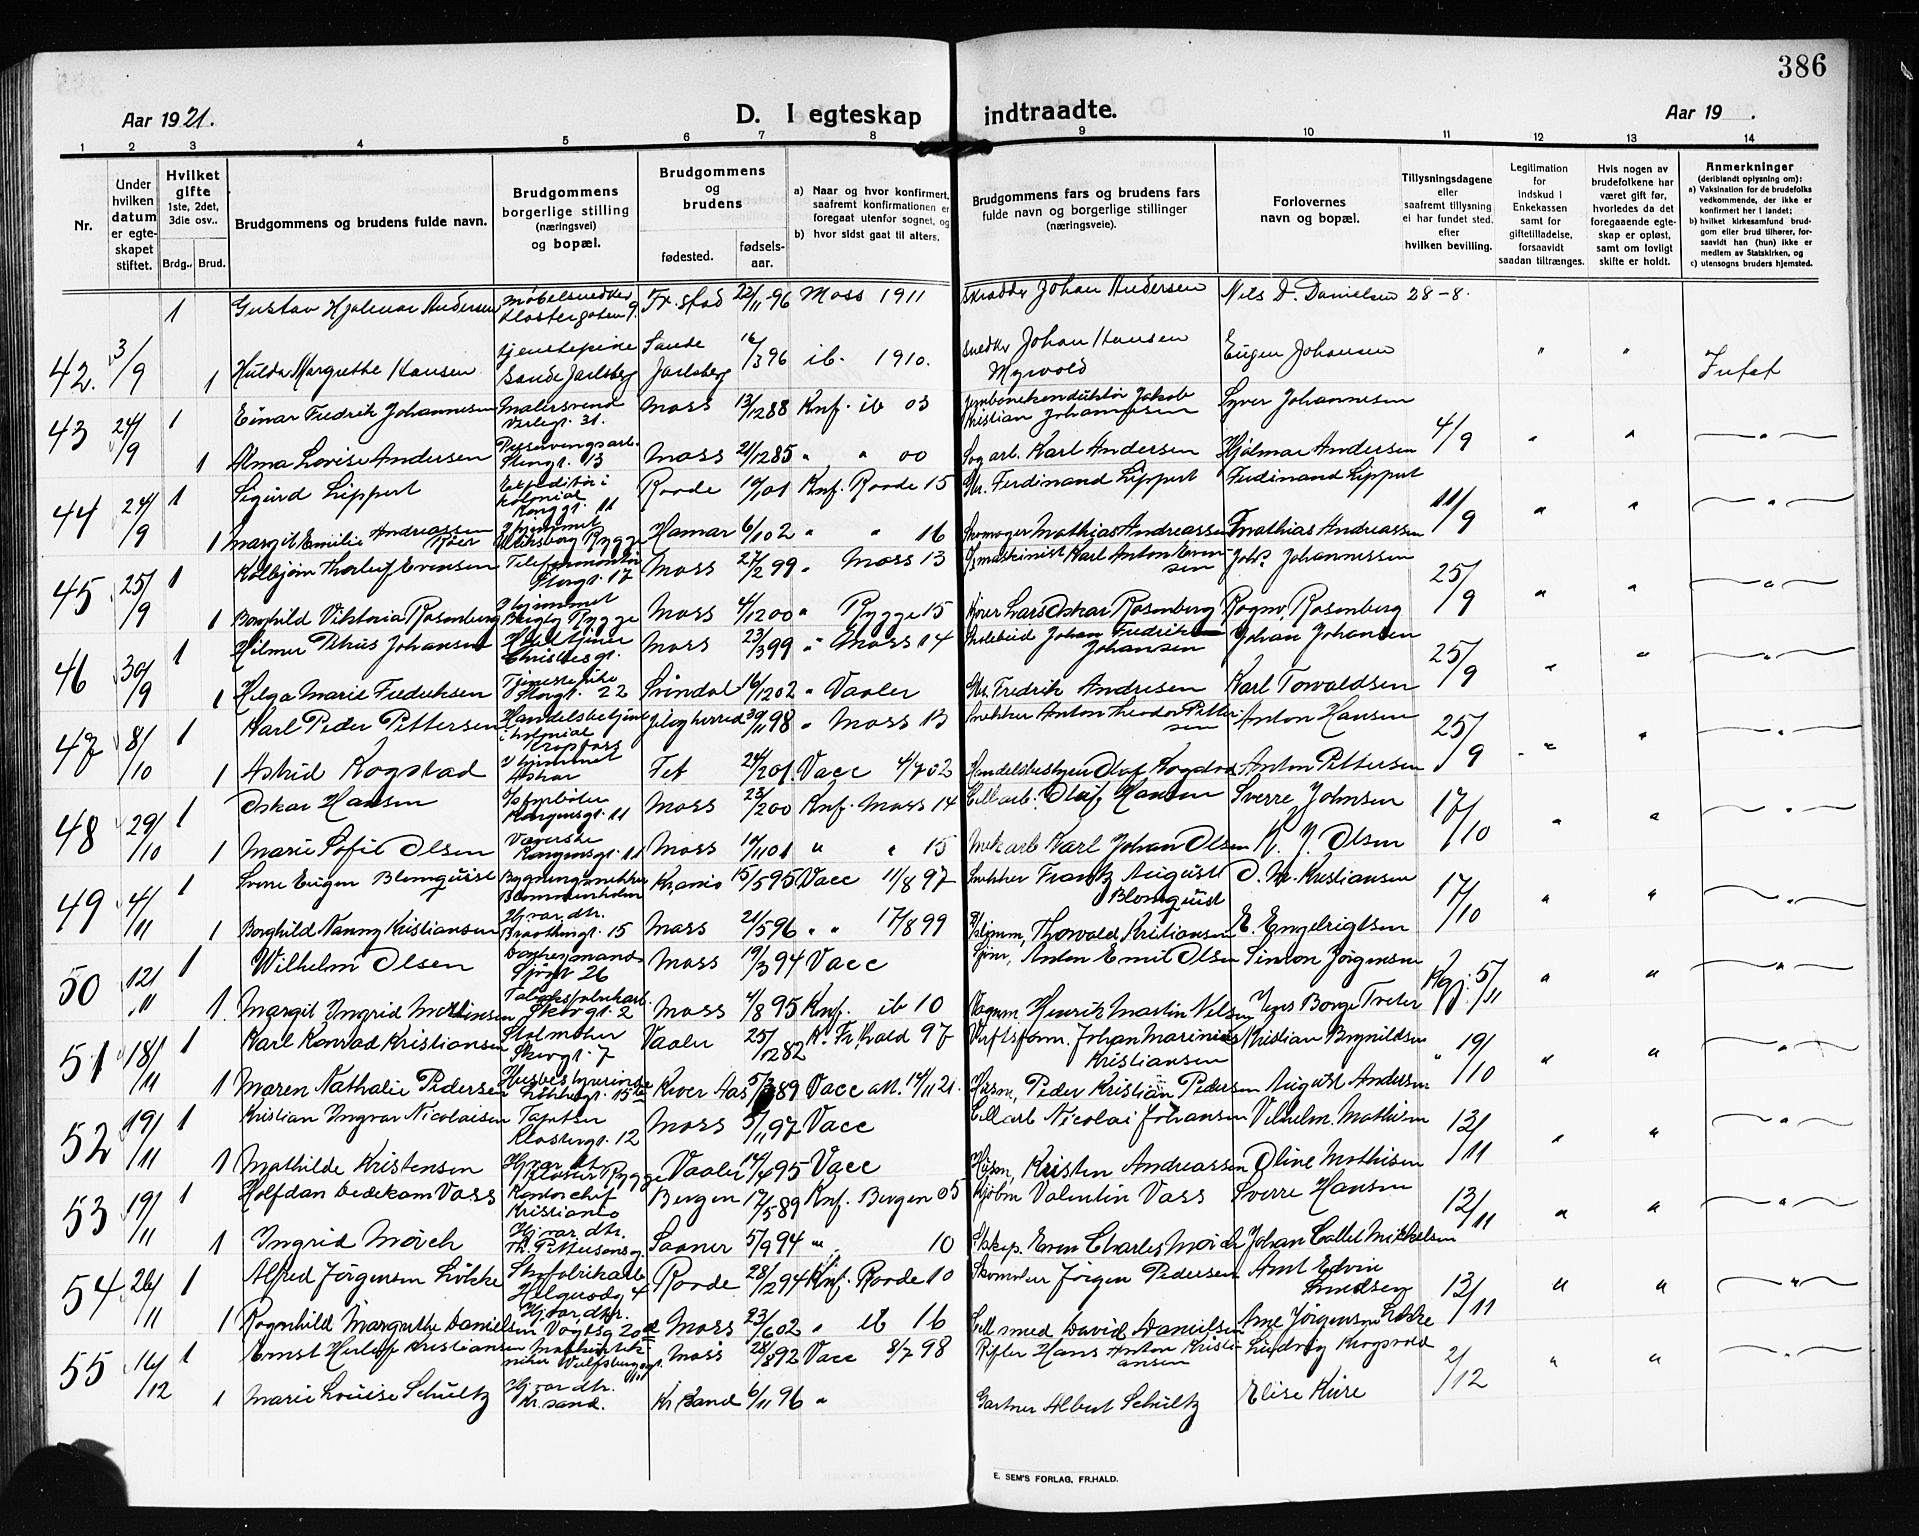 386
Aar 1921.
D. I egteskap indtraadte.
Aar 19 .
1 2 3 4 5 6 7 8 9 10 11 12 13 14
Nr.
Under hvilken datum er egteskapet stiftet.
Hvilket gifte 1ste, 2det, 3die osv..
Brdg., Brud.
Brudgommens og brudens fulde navn.
Brudgommens borgerlige stilling (næringsvei) og bopæl.
Brudgommens og brudens
fødested.
fødselsaar.
a) Naar og hvor konfirmert, saafremt konfirmationen er foregaat utenfor sognet, og
b) hvor sidst gaat til alters.
Brudgommens fars og brudens fars fulde navn og borgerlige stillinger (næringsveie).
Forlovernes navn og bopæl.
Tillysningsdagene eller saafremt tillysning ei har fundet sted. efter hvilken bevilling.
Legitimation for indskud i Enkekassen samt for giftetilladelse, forsaavidt saadan tiltrænges.
Hvis nogen av brudefolkene har været gift før, hvorledes da det foregaaende egteskap er opløst, samt om lovligt skifte er holdt.
Anmerkninger (deriblandt oplysning om): a) Vaksination for de brudefolks vedkommende, der ikke er konfirmert her i landet; b) hvilket kirkesamfund brudgom eller brud tilhører, forsaavidt han (hun) ikke er medlem av Statskirken, og c) utensogns bruders hjemsted.
1 Gustav Hjalmar Andersen Møbelsnedker Klostergaten 9. Fr.stad 22/11-96 Moss 1911 Skrædder Johan Andersen Nils D. Danielsen 28-8.
42. 3/9 1 Hulda Margrethe Hansen tjenestepike Sande Jarlsberg Sande Jarlsberg 16/3 96 ib. 1910. Snedker Johan Hansen Myrvold Eugen Johansen " "
43 24/9 1 Einar Fredrik Johannesen Malersvend 31. Moss 13/12 88 Knf. ib 03 Jakob Kristian Johannesen Syver Johannesen 4/9 " "
1 Alma Lovise Andersen 13 Moss 21/12 85 " " 00 Sagarb. Karl Andersen Hjalmar Andersen
44 24/9 1 Sigurd Lippert Expeditør i kolonial Kongegt. 11 Raade 19/1 01 Knf. Raade 15 Gbr. Ferdinand Lippert Ferdinand Lippert 11/9 " "
1 Margit Emilie Andreassen Røer i hjemmet Rygge Hamar 6/1 02 " " 16 Skomager Mathias Andreassen Mathias Andreassen
45 25/9 1 Kolbjørn Thorleif Evensen Telefonmontør Storgt. 17 Moss 27/2 99 " Moss 13 Karl Anton Evensen Johs. Johannessen 25/9 " "
1 Borghild Viktoria Rosenberg i hjemmet Rygge Moss 4/12 00 " Rygge 15 Kjører Lars Oskar Rosenberg Ragnv. Rosenberg
46 30/9 1 Hilmer Petrus Johansen Moss 23/3 99 " Moss 14 Johan Fredrik Johansen Johan Johansen 25/9 " "
1 Helga Marie Fredriksen Tjenestepike Storgt. 22 Svindal 16/12 02 " Vaaler Gbr. Fredrik Andresen Karl Torvaldsen
47 8/10 1 Karl Peder Pettersen Handelsbetjent i kolonial Jeløy herred 30/11 98 " Moss 13 Snekker Anton Theodor Pettersen Anton Hansen 25/9 " "
1 Astrid Kogstad i hjemmet Askar Fet 24/2 01 Vacc 4/7 02 Handelsbestyrer Olaf Kogstad Anton Pettersen
48 29/10 1 Oskar Hansen Kongensgt. 11 Moss 23/2 00 Knf. Moss 14 Cell.arb. Olaf Hansen Sverre Johnsen 17/10 " "
1 Marie Sofie Olsen Væverske Kongensgt. 11 Moss 19/11 01 " " 15 Mek arb Karl Johan Olsen K. J. Olsen
49 4/11 1 Sverre Eugen Blomquist Bygningssnekker Blommenholm Kr.ania 15/5 95 Vacc 11/8 97 Snekker Frantz August Blomquist O. M. Kristiansen 17/10 " "
1 Borghild Nanny Kristiansen Hj.vær. dtr. 15 Moss 21/5 96 " " 17/8 99 Thorvald Kristiansen E. Engelrigtsen
50 12/11 1 Wilhelm Olsen 26 Moss 19/3 94 Vacc Sjøm, Anton Emil Olsen Simon Jørgensen Kgj. 5/11 " "
1. Margit Ingrid Martinsen 2 Moss 4/8 95 Knf. ib 10 Henrik Martin Nilsen Jens Borge Treter
51 18/11 1 Karl Konrad Kristiansen Skovgt. 7 Vaaler 25/12 82 K. Fr.hald 97 Verftsform. Johan Marinius Kristiansen Kristian Brynildsen " 19/10 " "
1 Maren Nathalie Pedersen Husbestyrerinde 15 Kroer Aas 5/3 89 Vacc att. 14/11 21. Husm, Peder Kristian Pedersen August Andersen
52 19/11 1 Kristian Ingvar Nicolaisen Klostergt. 12 Moss 3/11 97 Vacc Cell arb Nicolai Johansen Vilhelm. Mathisen 12/11 " "
1 Mathilde Kristensen Hj.vær. dtr. Kloster Rygge Vaaler 14/6 95 Vacc Husm, Kristen Andreassen Oline Mathisen
53 19/11 1 Halfdan Dedekam Vass Kontorchef Kristiania Bergen 17/5 89 Knf. Bergen 05 Kjøbm Valentin Vass Sverre Hansen 12/11 " "
1 Ingrid Mørch Hj.vær. dtr. Th. Pettersensg Saaner 5/9 94 " 10 Skskp. Even Charles Mørch Johan Callet Mikkelsen
54 26/11 1 Alfred Jørgensen Løkke Skofabrikarb Helgerødg 4 Raade 28/12 94 Knf. Raade 10 Skomaker Jørgen Pedersen Arnt Edvin Knudsen 12/11 " "
1 Ragnhild Margrethe Danielsen Hj.vær. dtr. Vogtsg 20 d Moss 23/6 02 " ib 16 Cell smed David Danielsen Arne Jørgensen Løkke
55 16/12 1 Ernst Herlof Kristiansen Moss 28/8 92 Vacc 8/7 98 Hans Anton Kristiansen Ludvig Krogsvold 2/12 " "
1 Marie Louise Schultz Hj.vær. dtr. Kr.sand. Kr Sand 6/11 96 " Gartner Albert Schultz Elise Kure
E. SEM'S FORLAG, FR.HALD.